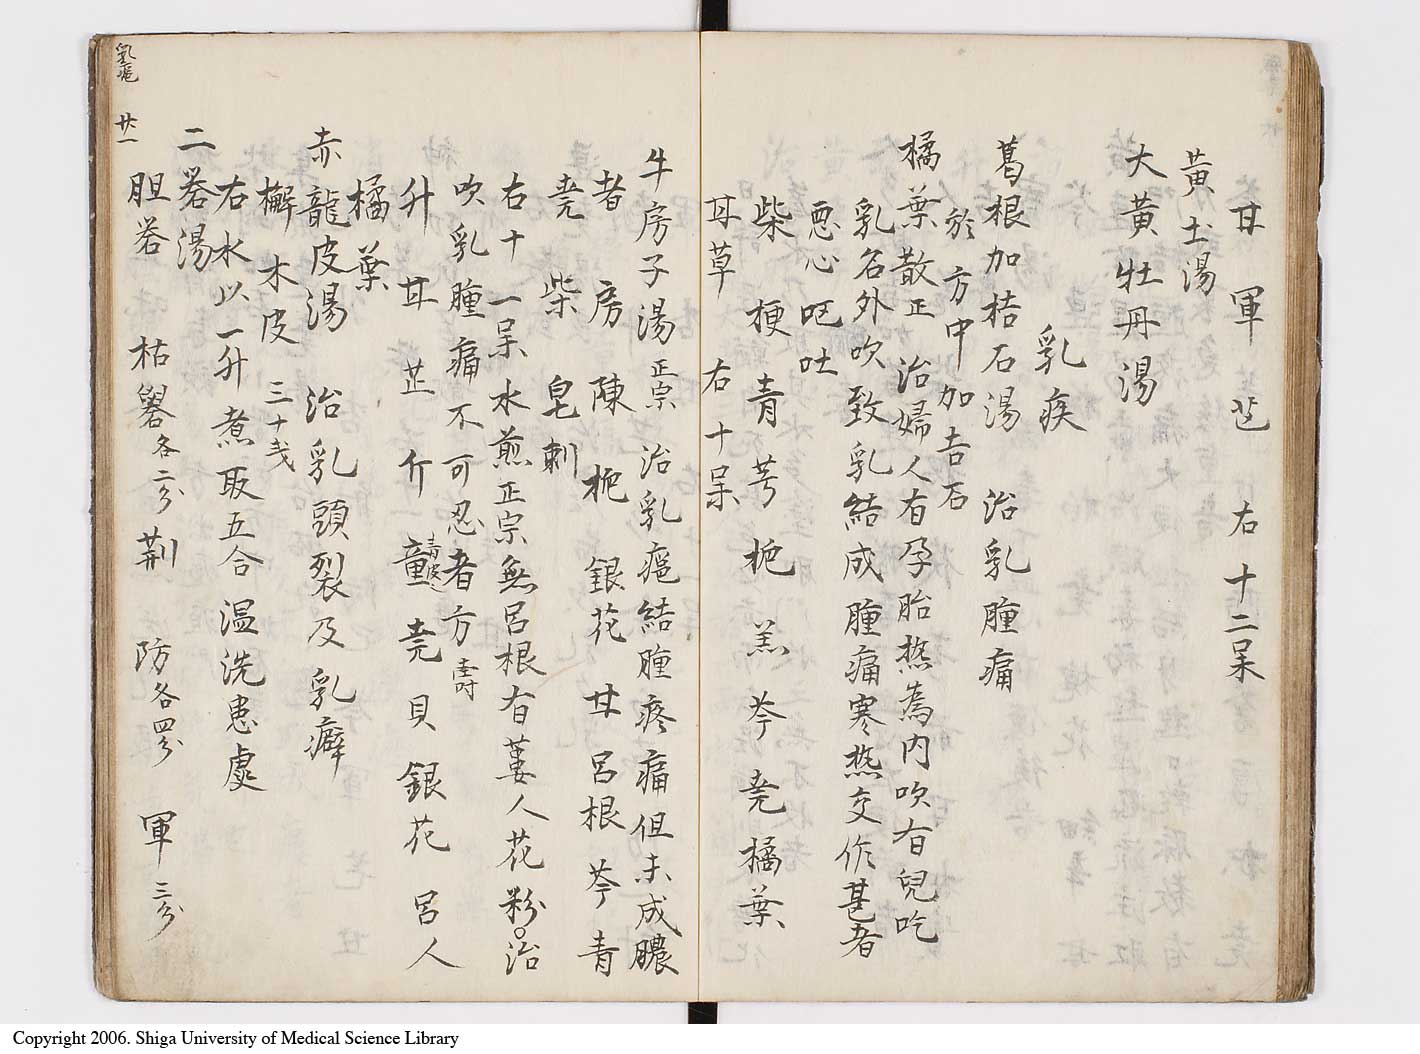 甘　軍　芷　右十二呆
黄土湯
大黄牡丹湯
乳疾
葛根加桔石湯　治乳腫痛
於方中加吉石
橘葉散正　治婦人有孕胎热為内吹有兒吃
乳名外吹致乳結成腫痛寒热交作甚者
悪心呕吐
柴　梗　青　芎　栀　羔　芩　尭　橘葉
甘草　右十呆
牛房子湯正宗　治乳疽結腫疼痛但未成膿
者　房　陳　栀　銀花　甘　呂根　芩　青
尭　柴　皂刺
右十一呆水煎正宗無呂根有蔞人花粉。治
吹乳腫痛不可忍者方寿
升　甘　芷　尭　貝　銀花　呂人
橘葉
赤龍皮湯　治乳頭裂及乳癖
檞木皮三十戋
右水以一升煮取五合温洗患處
二礬湯
胆礬　枯礬各二分　荊　防各四分　軍三分
廿一
Copyright 2006. Shiga University of Medical Science Library